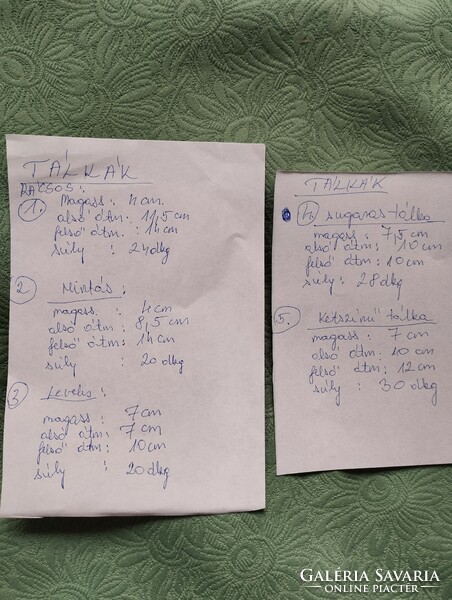 TÁLKÁK
RÁCSOS:
1. magass: 4 cm
alsó átm: 11,5 cm
felső átm: 14 cm
súly : 24 dkg
2. Mintás:
magass : 4 cm
alsó átm: 8,5 cm
felső átm: 14 cm
súly : 20 dkg
3. Leveles:
magass : 7 cm
alsó átm: 7 cm
felső átm: 10 cm
súly : 20 dkg
TÁLKÁK
4. sugaras-tálka
magass: 7,5 cm
alsó átm: 10 cm
felső átm: 10 cm
súly: 28 dkg
5. Kétszínű tálka
magass: 7 cm
alsó átm: 10 cm
felső átm: 12 cm
súly : 30 dkg
GALÉRIA SAVARIA
ONLINE PIACTÉR